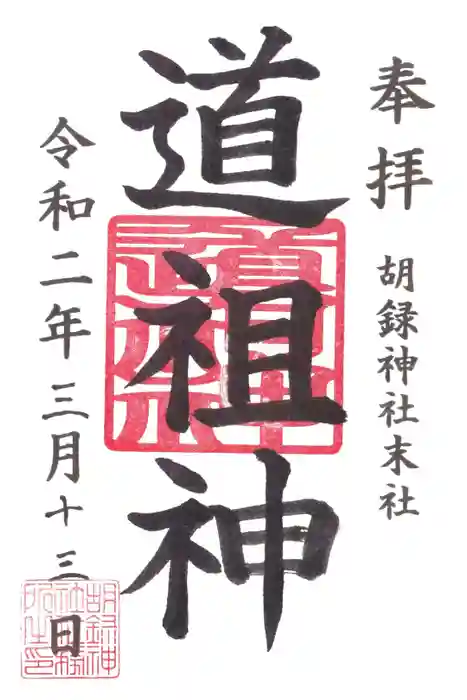 奉拝
胡録神社末社
道祖神
令和二年三月十三日
道祖神
胡録神社社務所之印